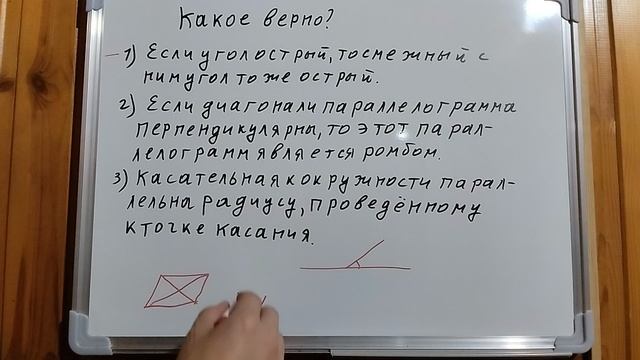 Какое верно?
1) Если угол острый, то смежный с
ним угол тоже острый.
2) Если диагонали параллелограмма
перпендикулярны, то этот парал-
лелограмм является ромбом.
3) Касательная к окружности парал-
лельна радиусу, проведённому
к точке касания.